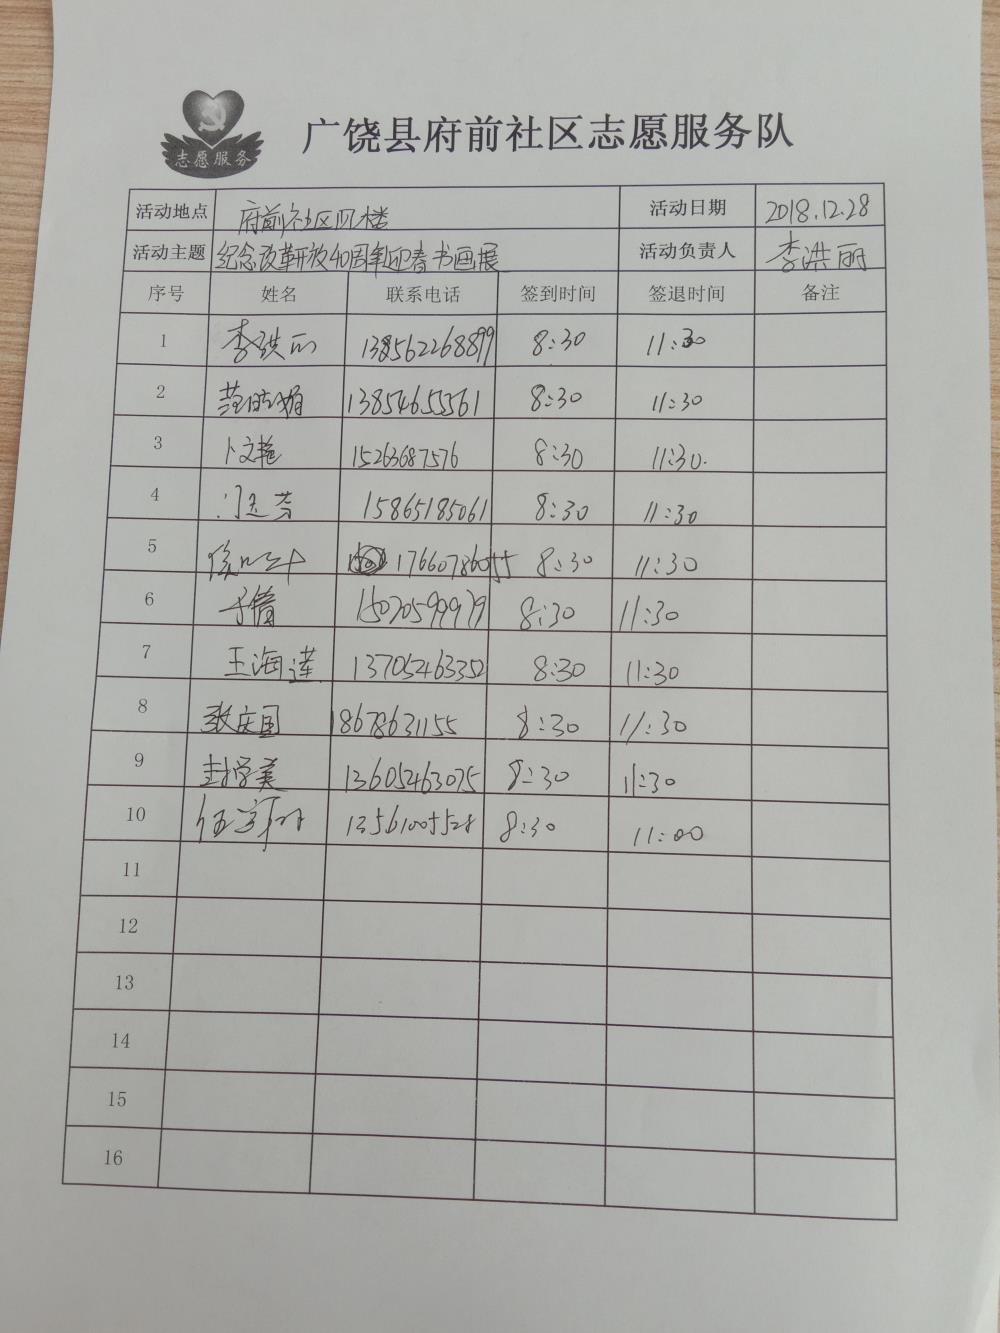 志愿服务
广饶县府前社区志愿服务队
活动地点 府前社区四楼 活动日期 2018.12.28
活动主题 纪念改革开放40周年迎春书画展 活动负责人 李洪丽
序号 姓名 联系电话 签到时间 签退时间 备注
1 李洪丽 138562268899 8:30 11:30
2 13854655561 8:30 11:30
3 卜文艳 15263687576 8:30 11:30.
4 15865185061 8:30 11:30
5 17660786055 8:30 11:30
6 于倩 15020599979 8:30 11:30
7 王海莲 13705463352 8:30 11:30
8 张庆国 18678631155 8:30 11:30
9 封学美 13605463075 8:30 11:30
10 13561005528 8:30 11:00
11
12
13
14
15
16